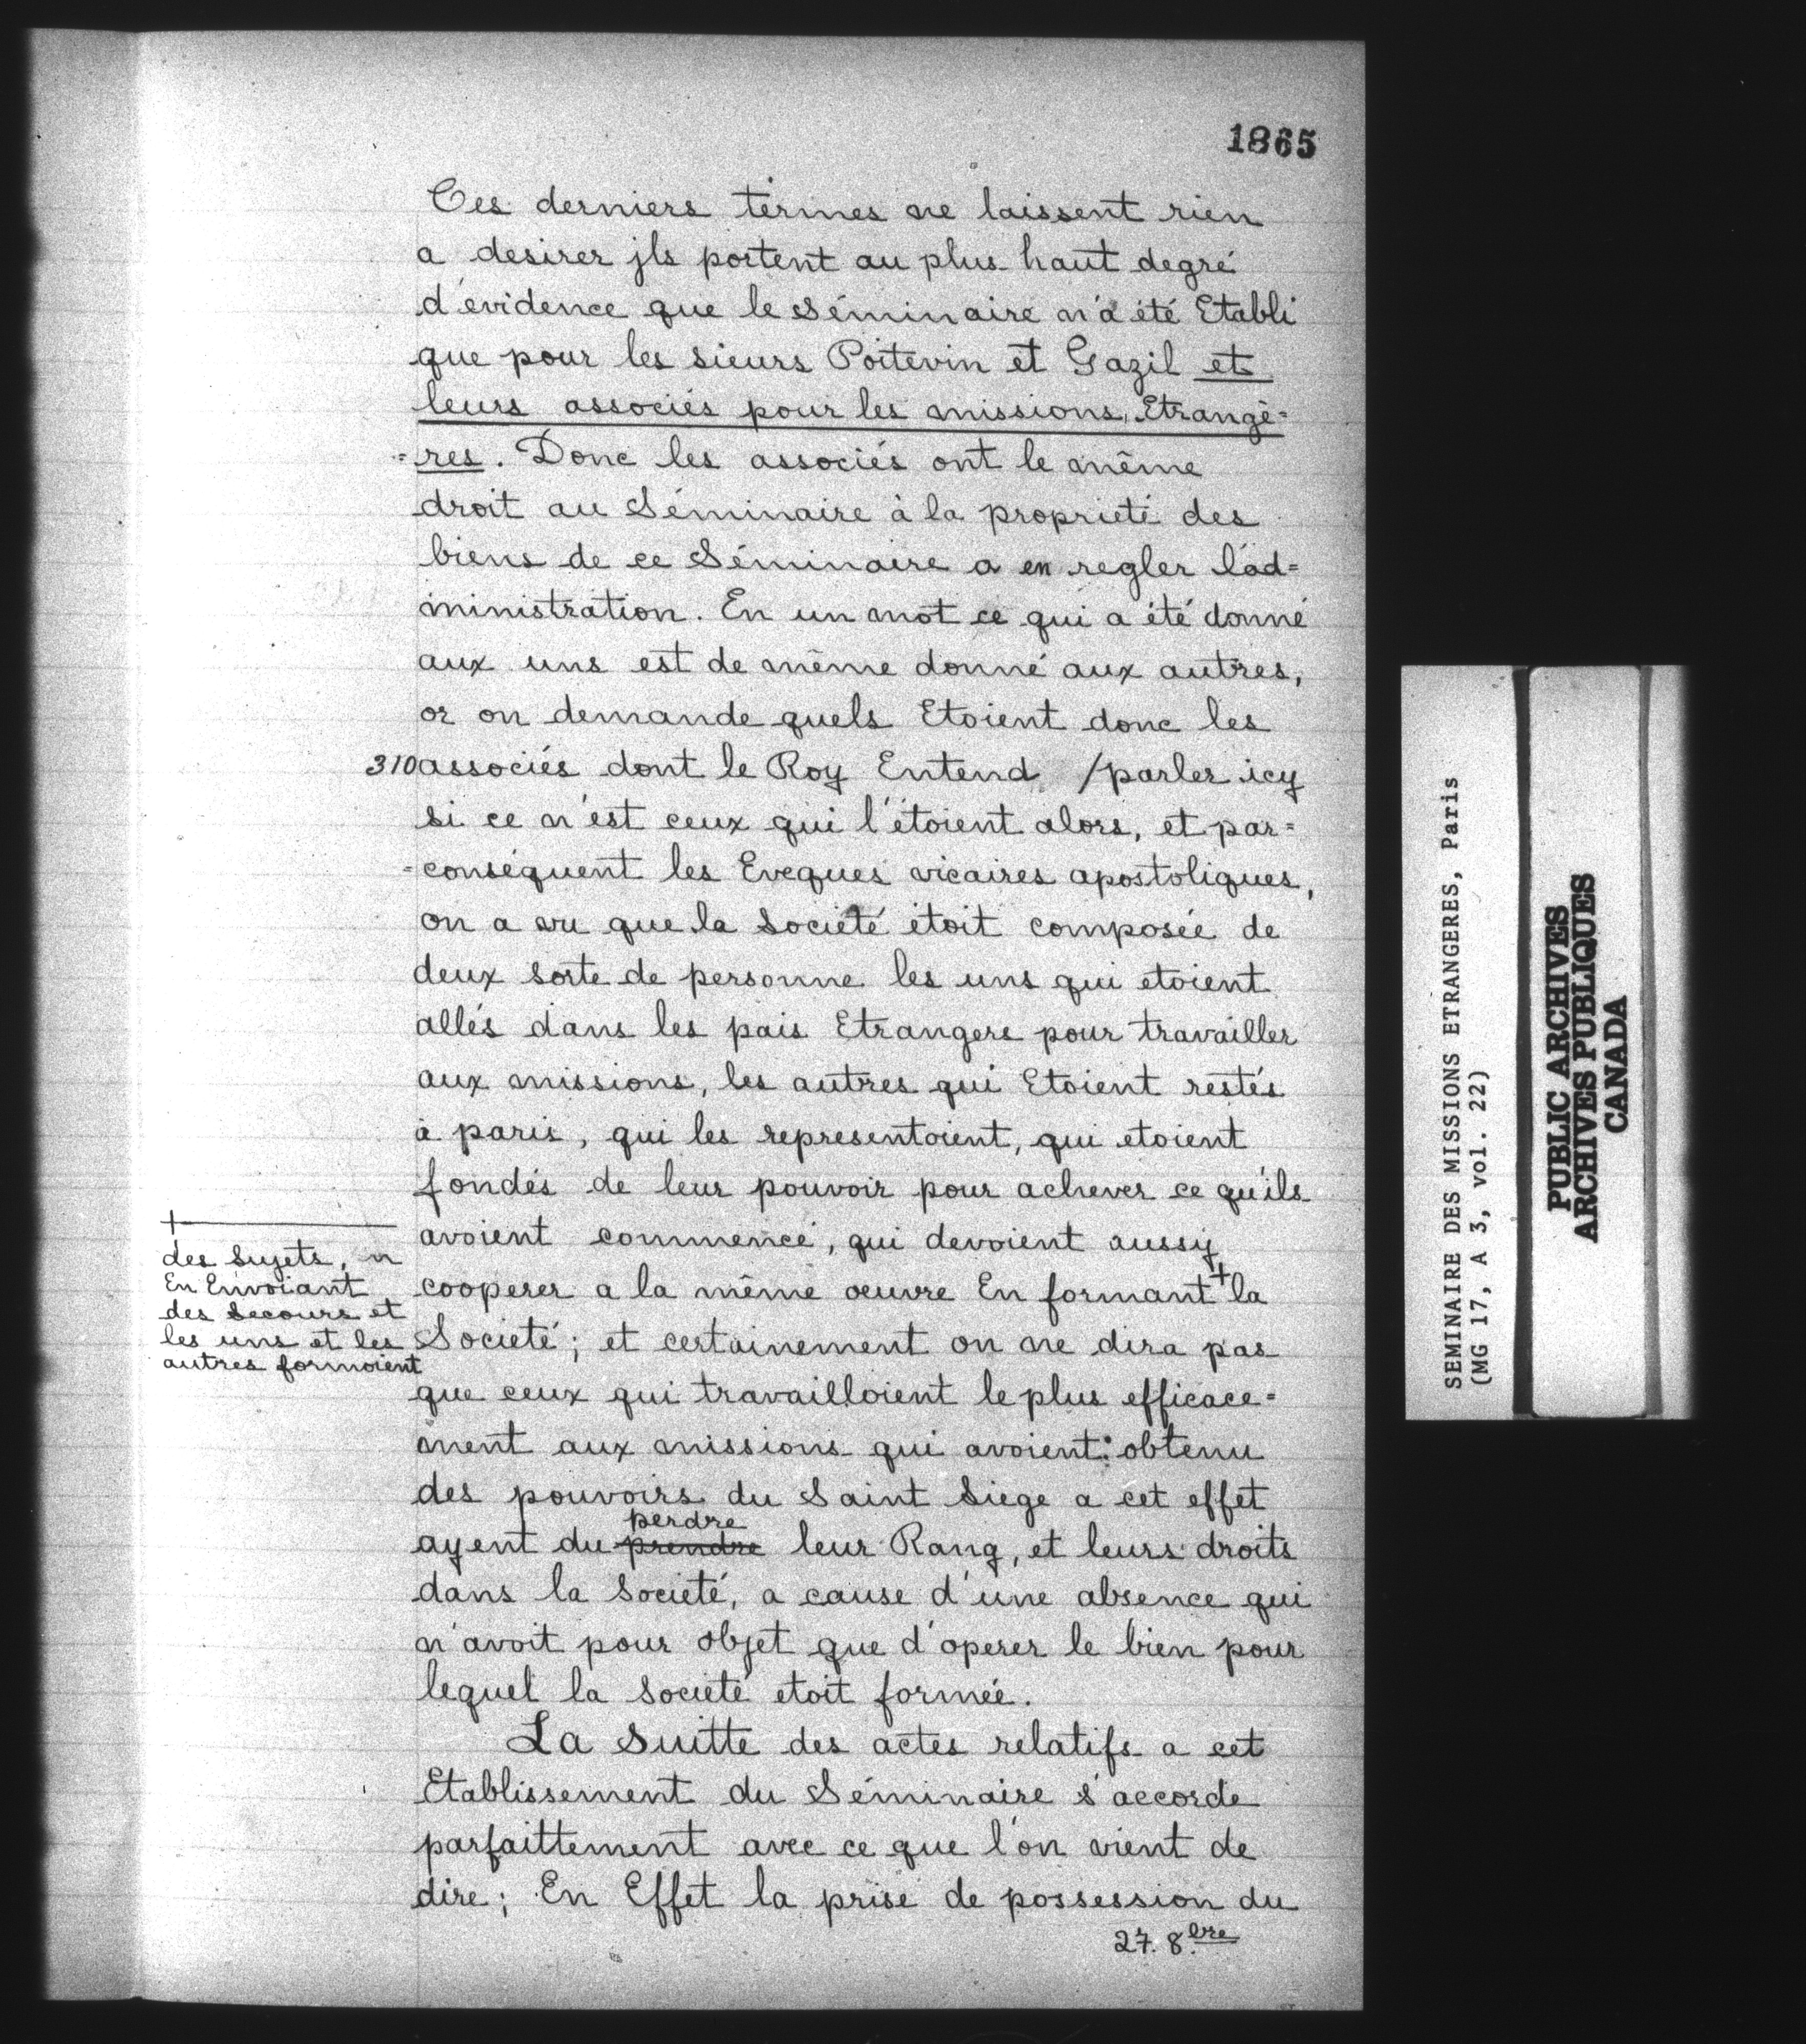 1865
Ces derniers termes ne laissent rien
a desirer jls portent au plus haut degré
d'evidence que le Séminaire n'a été Etabli
que pour les sieurs Poitevin et Gazil et
leurs associés pour les missions Etrangè=
=res. Donc les associés ont le même
droit au Séminaire à la proprieté des
biens de ce Séminaire a en regler l'ad=
ministration. En un mot ce qui a été donné
aux uns est de même donné aux autres,
or on demande quels Etoient donc les
310 associés dont le Roy Entend /parler icy
si ce n'est ceux qui l'étoient alors, et par=
=conséquent les Eveques vicaires apostoliques,
on a vu que la Société étoit composée de
deux sorte de personne les uns qui etoient
allés dans les pais Etrangers pour travailler
aux missions, les autres qui Etoient restés
à paris, qui les representoient, qui etoient
fondés de leur pouvoir pour achever ce qu'ils
avoient commencé, qui devoient aussy
cooperer a la même oeuvre En formant + la
Societé; et certainement on ne dira pas
que ceux qui travailloient le plus efficace=
ment aux missions qui avoient obtenu
des pouvoirs du Saint Siege a cet effet
perdre
ayent du prendre leur Rang, et leurs droits
dans la Societé, a cause d'une absence qui
n'avoit pour objet que d'operer le bien pour
lequel la Societé etoit formée.
La Suitte des actes relatifs a cet
Etablissement du Séminaire s'accorde
parfaittement avec ce que l'on vient de
dire; En Effet la prise de possession du
27. 8.bre
+
des Sujets, n
En Envoiant
des Secours et
les uns et les
autres formoient
SEMINAIRE DES MISSIONS ETRANGERES, Paris
(MG 17, A 3, vol. 22)
PUBLIC ARCHIVES
ARCHIVES PUBLIQUES
CANADA